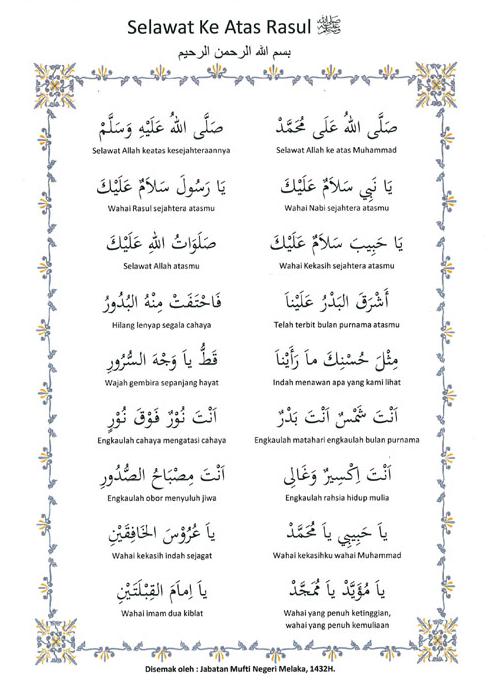 Selawat Ke Atas Rasul ﷺ
بسم الله الرحمن الرحيم
صَلَّى اللهُ عَلَى مُحَمَّدْ صَلَّى اللهُ عَلَيْهِ وَسَلَّمْ
Selawat Allah ke atas Muhammad Selawat Allah keatas kesejahteraannya
يَا نَبِي سَلاَمٌ عَلَيْكَ يَا رَسُولَ سَلاَمٌ عَلَيْكَ
Wahai Nabi sejahtera atasmu Wahai Rasul sejahtera atasmu
يَا حَبِيبَ سَلاَمٌ عَلَيْكَ صَلَوَاتُ اللهِ عَلَيْكَ
Wahai Kekasih sejahtera atasmu Selawat Allah atasmu
أَشْرَقَ الْبَدْرُ عَلَيْنَا فَاخْتَفَتْ مِنْهُ البُدُورُ
Telah terbit bulan purnama atasmu Hilang lenyap segala cahaya
مِثْلَ حُسْنِكَ ماَ رَأَيْناَ قَطُّ ياَ وَجْهَ السُّرُورِ
Indah menawan apa yang kami lihat Wajah gembira sepanjang hayat
اَنْتَ شَمْسٌ اَنْتَ بَدْرٌ اَنْتَ نُوْرٌ فَوْقَ نُوْرٍ
Engkaulah matahari engkaulah bulan purnama Engkaulah cahaya mengatasi cahaya
اَنْتَ اِكْسِيرٌ وَغَالِى اَنْتَ مِصْبَاحُ الصُّدُورِ
Engkaulah rahsia hidup mulia Engkaulah obor menyuluh jiwa
ياَ حَبِيبِى ياَ مُحَمَّدْ ياَ عَرُوْسَ الخَافِقَيْنِ
Wahai kekasihku wahai Muhammad Wahai kekasih indah sejagat
ياَ مُؤَيَّدْ ياَ مُمَجَّدْ ياَ اِمامَ القِبْلَتَيْنِ
Wahai yang penuh ketinggian, Wahai imam dua kiblat
wahai yang penuh kemuliaan
Disemak oleh : Jabatan Mufti Negeri Melaka, 1432H.